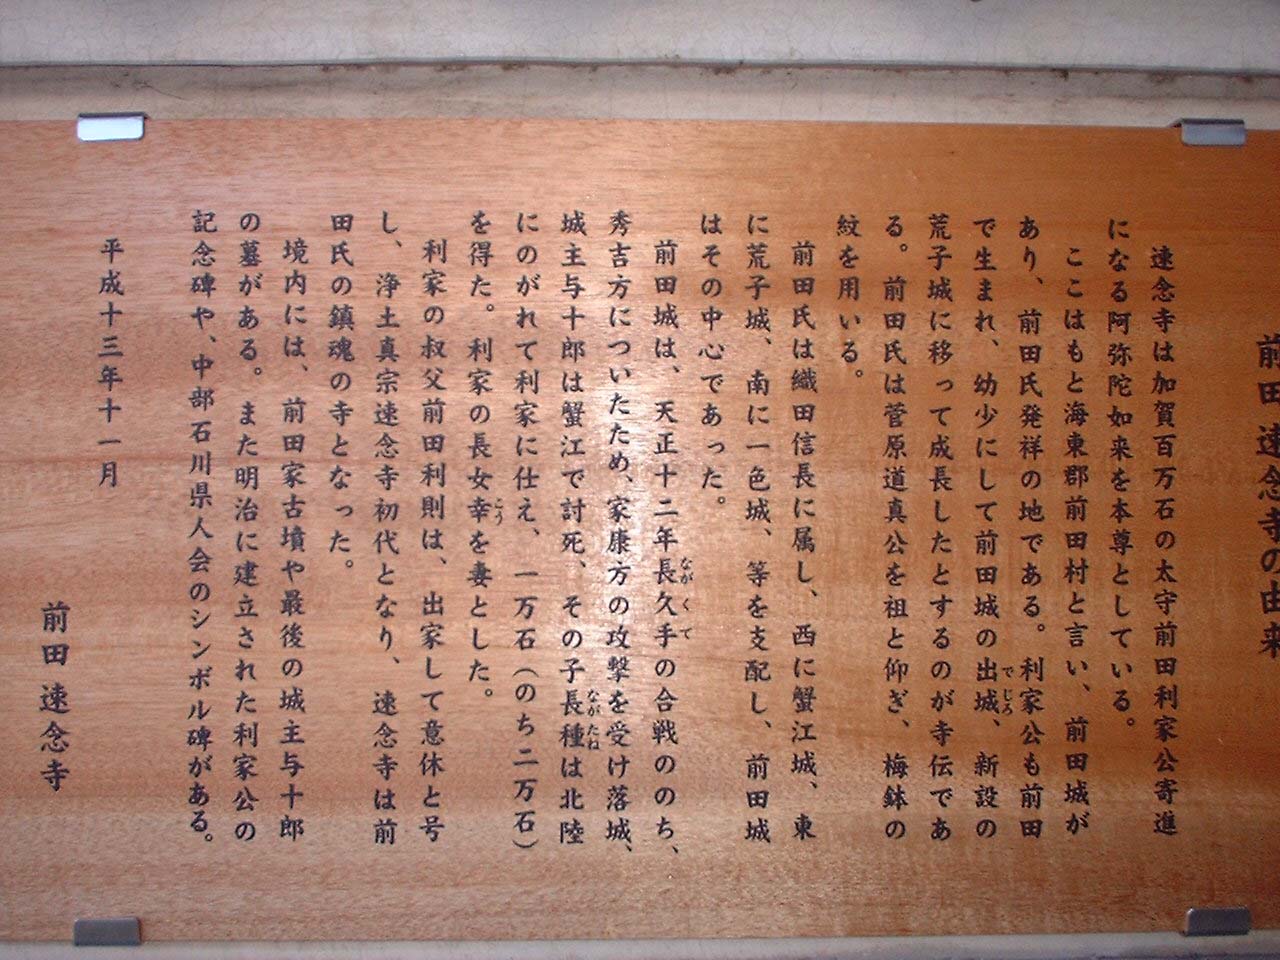 前田 速念寺の由来
速念寺は加賀百万石の太守前田利家公寄進
になる阿弥陀如来を本尊としている。
ここはもと海東郡前田村と言い、前田城が
あり、前田氏発祥の地である。利家公も前田
で生まれ、幼少にして前田城の出城、新設の
荒子城に移って成長したとするのが寺伝であ
る。前田氏は菅原道真公を祖と仰ぎ、梅鉢の
紋を用いる。
前田氏は織田信長に属し、西に蟹江城、東
に荒子城、南に一色城、等を支配し、前田城
はその中心であった。
前田城は、天正十二年長久手の合戦ののち、
秀吉方についたため、家康方の攻撃を受け落城、
城主与十郎は蟹江で討死、その子長種は北陸
にのがれて利家に仕え、一万石(のち二万石)
を得た。利家の長女幸を妻とした。
利家の叔父前田利則は、出家して意休と号
し、浄土真宗速念寺初代となり、速念寺は前
田氏の鎮魂の寺となった。
境内には、前田家古墳や最後の城主与十郎
の墓がある。また明治に建立された利家公の
記念碑や、中部石川県人会のシンボル碑がある。
平成十三年十一月
前田 速念寺